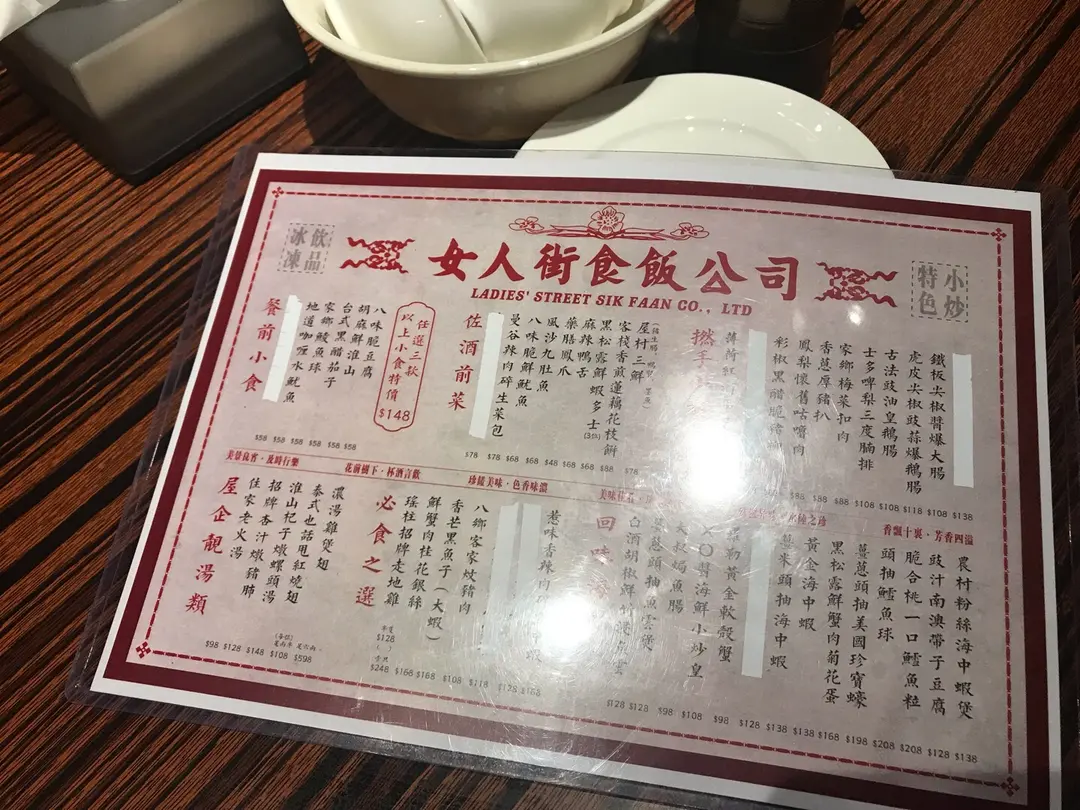 飲品
冰凍
女人街食飯公司
LADIES' STREET SIK FAAN CO., LTD
小炒
特色
鐵板尖椒醬爆大腸
虎皮尖椒豉蒜爆鵝腸
古法豉油皇鵝腸
士多啤梨三度腩排
家鄉梅菜扣肉
香蔥厚豬扒
鳳梨懷舊咕嚕肉
彩椒黑醋脆
$88 $88 $88 $108 $108 $118 $108 $138
撚手
屋村三鮮
客棧香煎蓮藕花枝餅
黑松露鮮蝦多士
麻辣鴨舌
藥膳鳳爪
風沙九肚魚
八味脆鮮魷魚
曼谷辣肉碎生菜包
佐酒前菜
$78 $78 $68 $68 $48 $68 $68 $88 $78
任選三款
以上小食特價
$148
八味脆豆腐
胡麻鮮淮山
台式黑醋茄子
家鄉鯪魚球
地道咖喱水魷魚
餐前小食
$58 $58 $58 $58 $58 $58
美景良宵·及時行樂
花前樹下·杯酒言歡
珍饈美味·色香味濃
香飄十里·芳香四溢
農村粉絲海中蝦煲
豉汁南澳帶子豆腐
脆合桃一口鱸魚粒
頭抽鱸魚球
薑蔥頭抽美國珍寶蠔
黑松露鮮蟹肉菊花蛋
黃金海中蝦
薑米頭抽海中蝦
黃金軟殼蟹
醬海鮮小炒皇
大叔焗魚腸
薑蔥頭抽魚雲煲
白酒胡椒鮮
回味
$128 $128 $98 $108 $98 $128 $138 $138 $168 $198 $208 $208 $128 $138
惹味香辣肉
八鄉客家炆豬肉
香芒黑魚子
鮮蟹肉桂花銀絲(大蝦)
瑤柱招牌走地雞
必食之選
$128
$248 $168 $168 $108 $118 $128 $168
濃湯雞煲翅
泰式也話甩紅燒翅
淮山杞子燉螺頭湯
招牌杏汁燉豬肺
住家老火湯
屋企靚湯類
$98 $128 $148 $108 $598